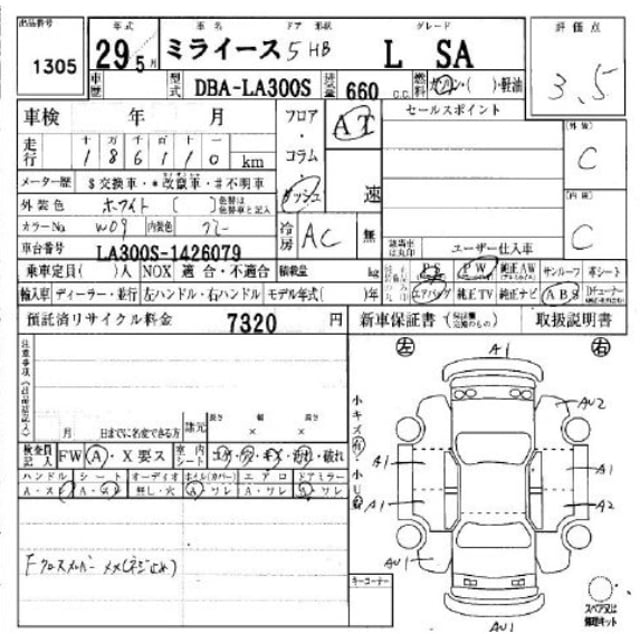 出品番号 年式 車名 ドア 形状 グレード 評価点
1305 29 5月 ミライース 5 HB L SA 3.5
車歴 型式 DBA-LA300S 排気量 660 c.c. 燃料 ガソリン・( )・軽油
車検 年 月 フロア・コラム・ダッシュ AT 速 セールスポイント (外装) C
走行 十 万 千 百 十 一
1 8 6 1 1 0 km
メーター歴 $交換車・*改竄車・#不明車 (内装) C
外装色 ホワイト ( ) 色替は色替車と記入
カラーNo. W09 内装色 グレー 冷房 AC 無 該当車は丸印 ユーザー仕入車
車台番号 LA300S-1426079
乗車定員( )人 NOX 適合・不適合 積載量 kg PS PW 純正AW サンルーフ 革シート
輸入車 ディーラー・並行 左ハンドル・右ハンドル モデル年式( )年 エアバッグ 純正TV 純正ナビ ABS
預託済リサイクル料金 7320 円 新車保証書 取扱説明書
注意事項
月 日までに名変できる方 諸元 長さ 幅 高さ
× ×
検査員記入 FW A・X要ス 室内シート コゲ・穴・キズ・汚れ・破れ
ハンドル シート オーディオ ホイル(カバー) エアロ ドアミラー
A・スレ A・スレ 無し・穴 A・ワレ A・ワレ A・ワレ
左 右
A1
AU2
小キズ有 小U
A1 A1
A1 A2
AU1
AU1
キーコーナー
スペア又は修理キット